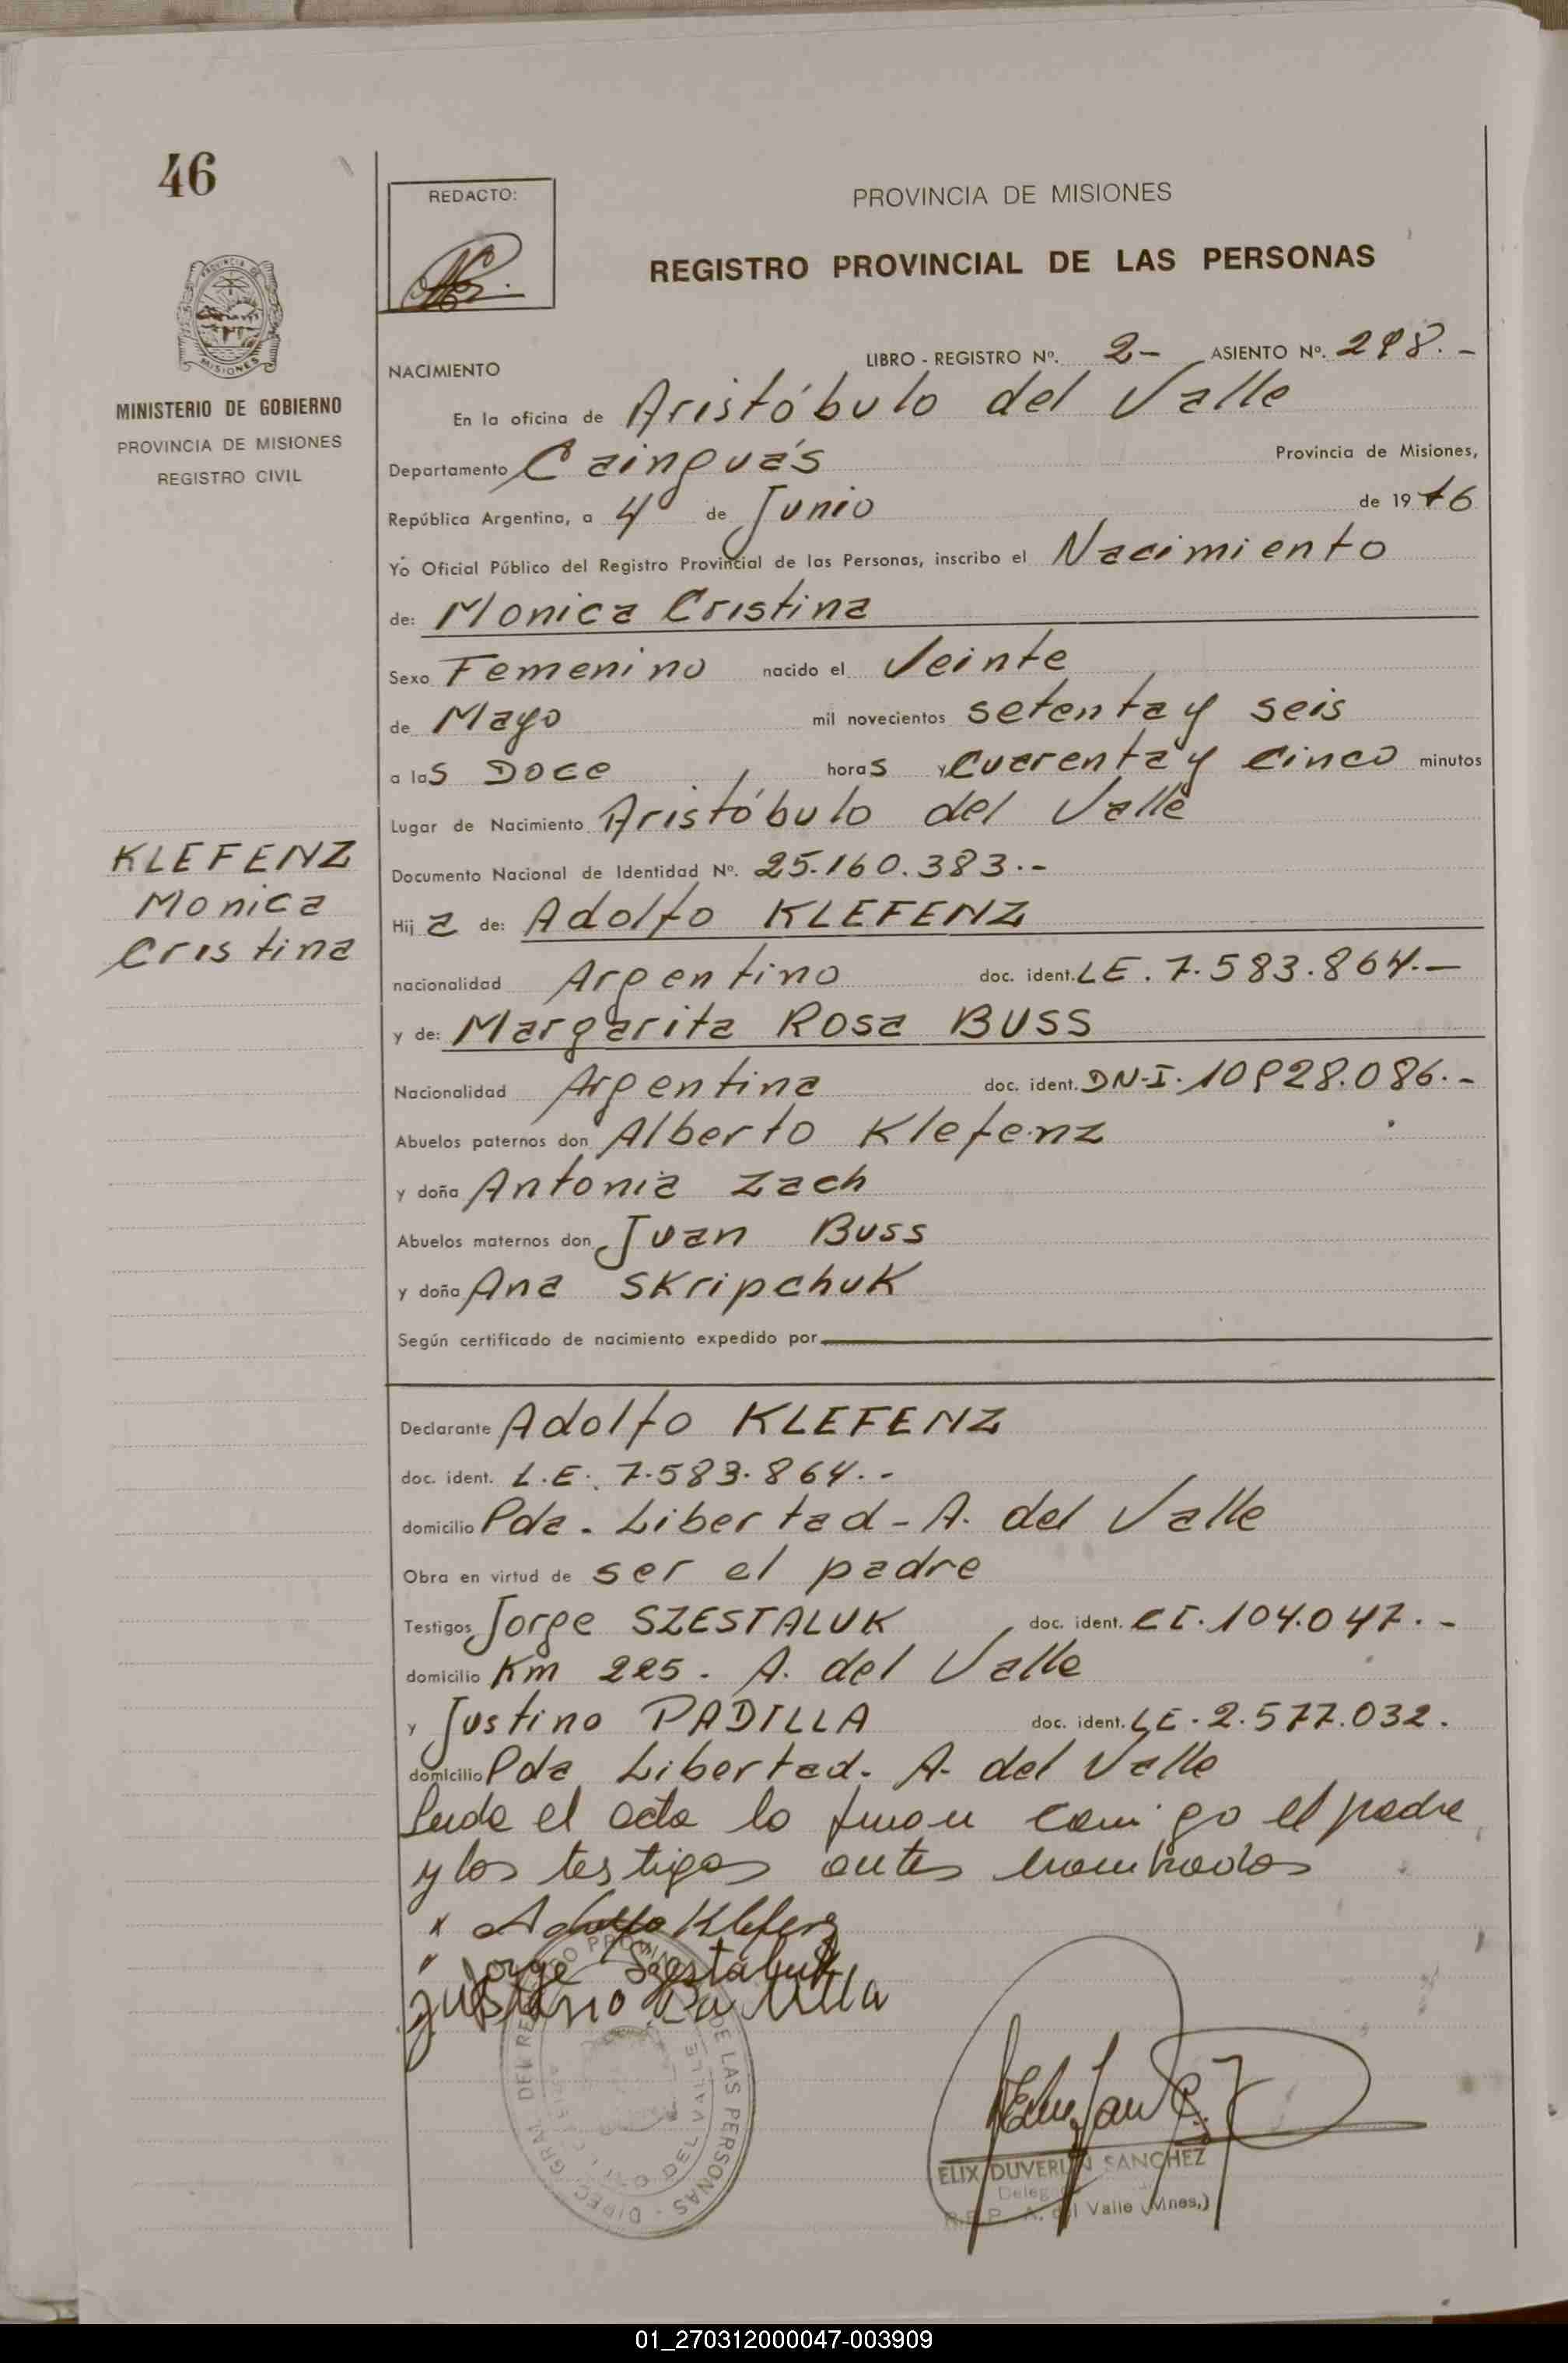 46
REDACTO:
PROVINCIA DE MISIONES
REGISTRO PROVINCIAL DE LAS PERSONAS
PROVINCIA DE
MISIONES
MINISTERIO DE GOBIERNO
PROVINCIA DE MISIONES
REGISTRO CIVIL
NACIMIENTO
LIBRO - REGISTRO Nº. 2- ASIENTO Nº. 298.-
En la oficina de Aristóbulo del Valle
Departamento Cainguás Provincia de Misiones,
República Argentina, a 4 de Junio de 19 76
Yo Oficial Público del Registro Provincial de las Personas, inscribo el Nacimiento
de: Monica Cristina
Sexo Femenino nacido el Veinte
de Mayo mil novecientos setenta y seis
a las Doce horas y cuarenta y cinco minutos
Lugar de Nacimiento Aristóbulo del Valle
KLEFENZ
Monica
Cristina
Documento Nacional de Identidad Nº. 25.160.383.-
Hija de: Adolfo KLEFENZ
nacionalidad Argentino doc. ident. LE. 7.583.864.-
y de: Margarita Rosa BUSS
Nacionalidad Argentina doc. ident. DN-I. 10928.086.-
Abuelos paternos don Alberto Klefenz
y doña Antonia Zach
Abuelos maternos don Juan Buss
y doña Ana SKripchuK
Según certificado de nacimiento expedido por
Declarante Adolfo KLEFENZ
doc. ident. L.E. 7.583.864.-
domicilio Pda. Libertad - A. del Valle
Obra en virtud de ser el padre
Testigos Jorge SZESTALUK doc. ident. CI. 104.047.-
domicilio Km 225. A. del Valle
y Justino PADILLA doc. ident. LE. 2.577.032.
domicilio Pda Libertad. A. del Valle
Leida el acta la firman conmigo el padre
y los testigos antes nombrados
x Adolfo Klefenz
Jorge Szestaluk
Justino Padilla
DIREC. GRAL. DEL REGISTRO PROVINCIAL DE LAS PERSONAS
DEL VALLE
ELIX DUVERLIN SANCHEZ
R.P.P. A. del Valle (Mnes.)
01_270312000047-003909